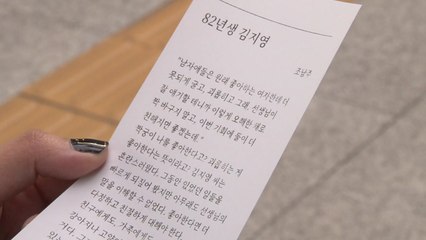 82년생 김지영
조남주
"남자애들은 원래 좋아하는 여자한테 더
못되게 굴고, 괴롭히고 그래. 선생님이
잘 얘기할 테니까 이렇게 오해한 채로
짝 바꾸지 말고, 이번 기회에 둘이 더
친해지면 좋겠는데."
짝꿍이 나를 좋아한다고? 괴롭히는 게
좋아한다는 뜻이라고? 김지영 씨는
혼란스러웠다. 그동안 있었던 일들을
빠르게 되짚어 봤지만 아무래도 선생님의
말을 이해할 수 없었다. 좋아한다면 더
다정하고 친절하게 대해야 한다.
친구에게도, 가족에게도,
강아지나 고양이
거다. 그